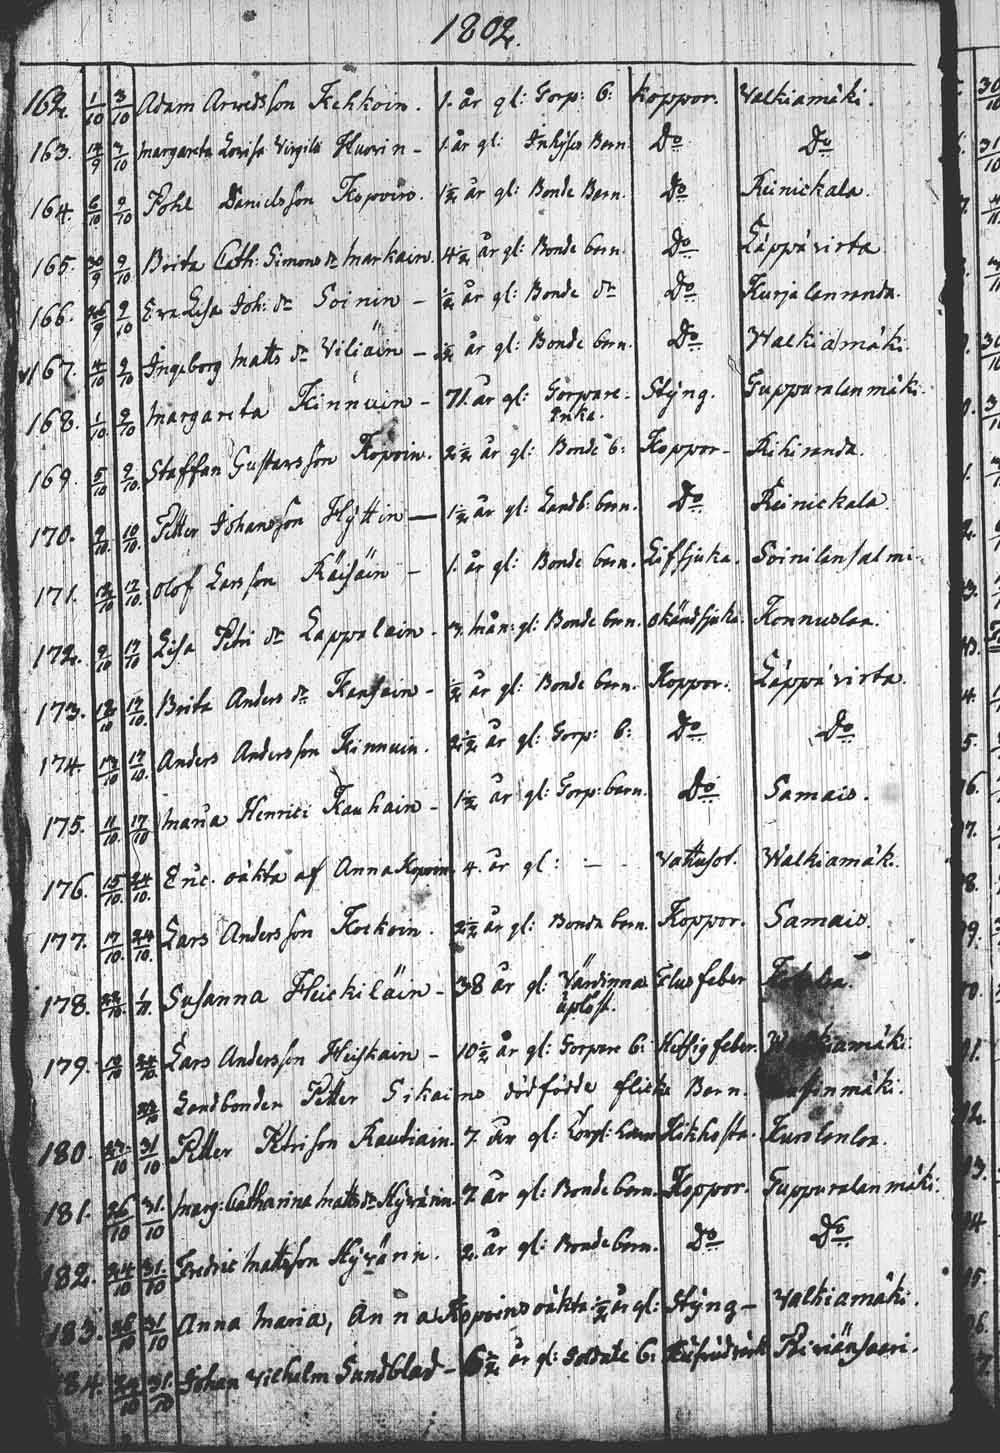 1802.
162. 1/10 3/10 Adam Arwedsson Kehkoin. 1. år gl: Torp: b: koppor. Walkiamäki.
163. 14/9 3/10 Margareta Lovisa Virgilia Huovin – 1. år gl: Inhyses Barn Do Do
164. 6/10 9/10 Pohl Danielsson Kopoin. 1½ år gl: Bonde Barn. Do Reinickala.
165. 30/9 9/10 Brita Cath: Simons dr Markain. 4½ år gl: Bonde barn. Do Läppävirta
166. 26/9 9/10 Eva Lisa Joh: dr Soinin – ½ år gl: Bonde dr Do Kurjalanranda.
167. 4/10 9/10 Ingeborg Matts dr Viliäin – ½ år gl: Bonde barn. Do Walkiamäki.
168. 1/10 9/10 Margareta Kinnuin – 71. år gl: Torpare- Styng. Tuppuralanmäki.
Enka.
169. 5/10 9/10 Staffan Gustavsson Kopoin. 2½ år gl: Bonde b: Koppor – Rihiranda.
170. 9/10 10/10 Petter Johansson Hyttin — 1½ år gl: Landb: barn. Do Reinickala.
171. 12/10 17/10 Olof Larsson Räisäin – 1. år gl: Bonde barn. Lifsjuka. Soinilansalmi.
172. 9/10 17/10 Lisa Petri dr Lappalain – 3. mån: gl: Bonde barn. okändsjuka. Konnuslax.
173. 12/10 17/10 Brita Anders dr Kansain – ½ år gl: Bonde barn. Koppor. Läppävirta
174. 13/10 17/10 Anders Andersson Kinnuin. 2½ år gl: Torp: b: Do Do
175. 11/10 17/10 Maria Henrici Kauhain – 1½ år gl: Torp: barn. Do Samais.
176. 15/10 24/10 Eric. oäkta af Anna Kopoin. 4. år gl: – Vattusot. Walkiamäk.
177. 17/10 24/10 Lars Andersson Kockoin. 2½ år gl: Bonde barn. Koppor. Samais.
178. 22/10 1/11 Susanna Heickiläin – 38 år gl: Värdinna Flusfeber
179. 19/10 24/10 Lars Andersson Heiskain – 10½ år gl: Torpare b: Hetsig feber. Walkiamäki.
Landbonden Petter Sikains dödfödde flicke Barn.
180. 27/10 31/10 Petter Petrison Rautiain. 7. år gl: Kikhosta. Kurolanlax.
181. 26/10 31/10 Marg: Catharina Matts dr Hyvärin. 7 år gl: Bonde barn. Koppor. Tuppuralanmäki.
182. 24/10 31/10 Fredric Mattsson Hyvärin. 2. år gl: Bonde barn. Do Do
183. 28/10 31/10 Anna Maria, Anna Kopoins oäkta ½ år gl: Styng – Walkiamäki.
184. 29/10 31/10 Johan Vilhelm Sundblad – 6½ år gl: Soldate b: